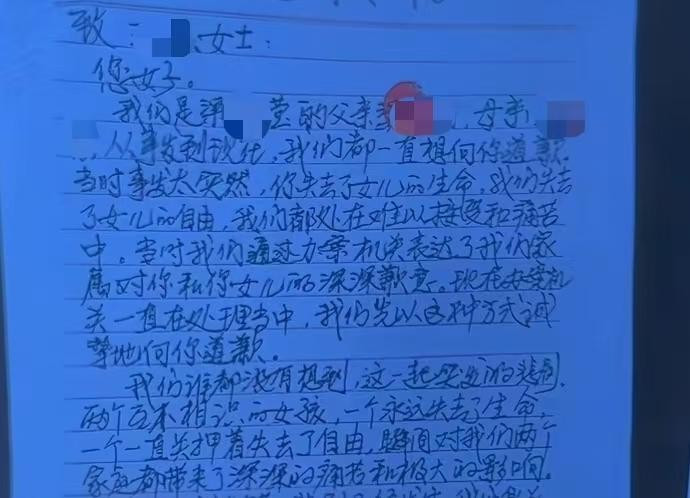 致：女士：
您好。
我们是谭莹的父亲谭，母亲
，从事发到现在，我们都一直想向你道歉
当时事发太突然，你失去了女儿的生命，我们失去
了女儿的自由，我们都处在难以接受和痛苦
中。当时我们通过办案机关表达了我们家
属对你和你女儿的深深歉意。现在办案机
关一直在处理当中，我们先以这种方式诚
挚地向你道歉。
我们谁都没有想到，这一起突发的悲剧，
两个互不相识的女孩，一个永远失去了生命，
一个一直关押着失去了自由，瞬间对我们两个
家庭都带来了深深的痛苦和极大的影响。